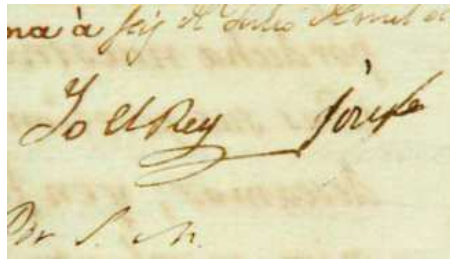 na à seis de Julio de mil oc
Yo el Rey Josef
Por S. M.